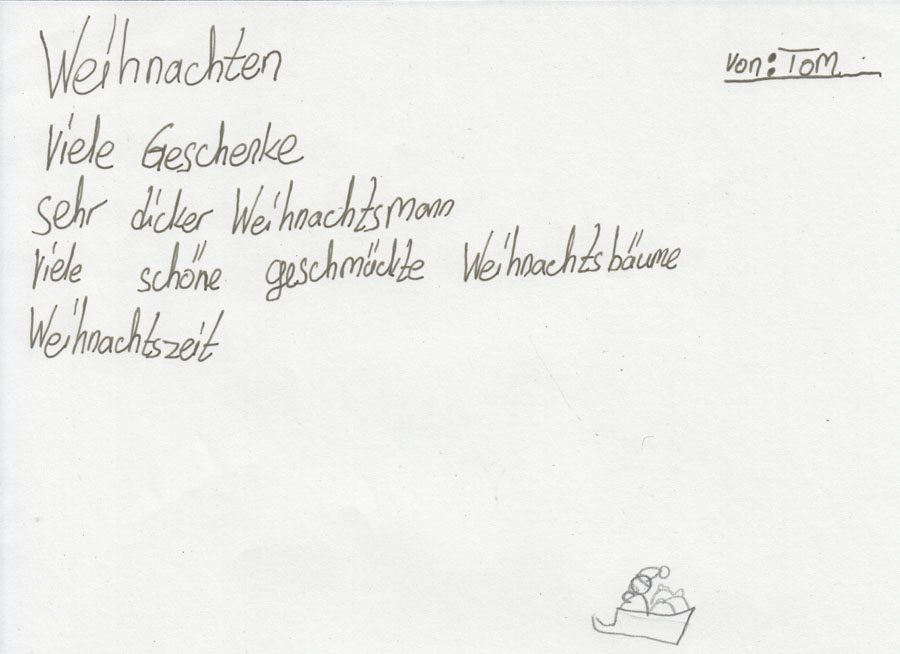 Weihnachten
von: Tom
Viele Geschenke
sehr dicker Weihnachtsmann
Viele schöne geschmückte Weihnachtsbäume
Weihnachtszeit